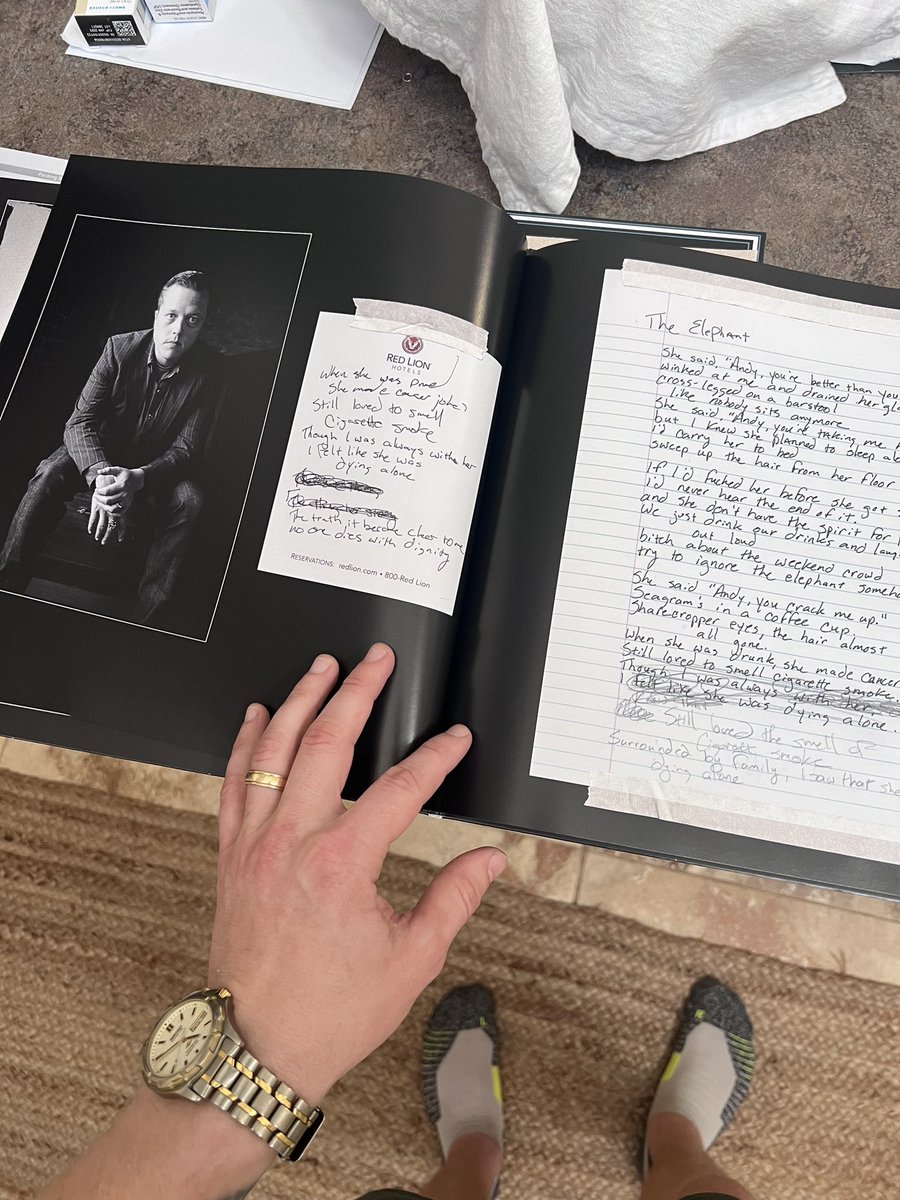 Packing
RED LION
HOTELS
When she was drunk
She made cancer jokes
Still loved to smell
Cigarette smoke
Though I was always with her
I felt like she was
dying alone
The truth, it became clear to me
no one dies with dignity
RESERVATIONS: redlion.com • 800-Red Lion
The Elephant
She said, "Andy, you're better than you
winked at me and drained her gla
cross-legged on a barstool
like nobody sits anymore
She said "Andy, you're taking me h
but I knew she planned to sleep alo
I'd carry her to bed
sweep up the hair from her floor
If I'd fucked her before she got s
I'd never hear the end of it.
and she don't have the spirit for
We just drink our drinks and laug
out loud
bitch about the weekend crowd
try to ignore the elephant someho
She said "Andy, you crack me up."
Seagram's in a coffee cup,
Sharecropper eyes, the hair almost
all gone.
When she was drunk, she made cancer
Still loved to smell cigarette smoke.
Though I was always with her,
I felt like she was dying alone.
Still loved the smell of
Cigarette smoke
Surrounded by family, I saw that she
dying alone